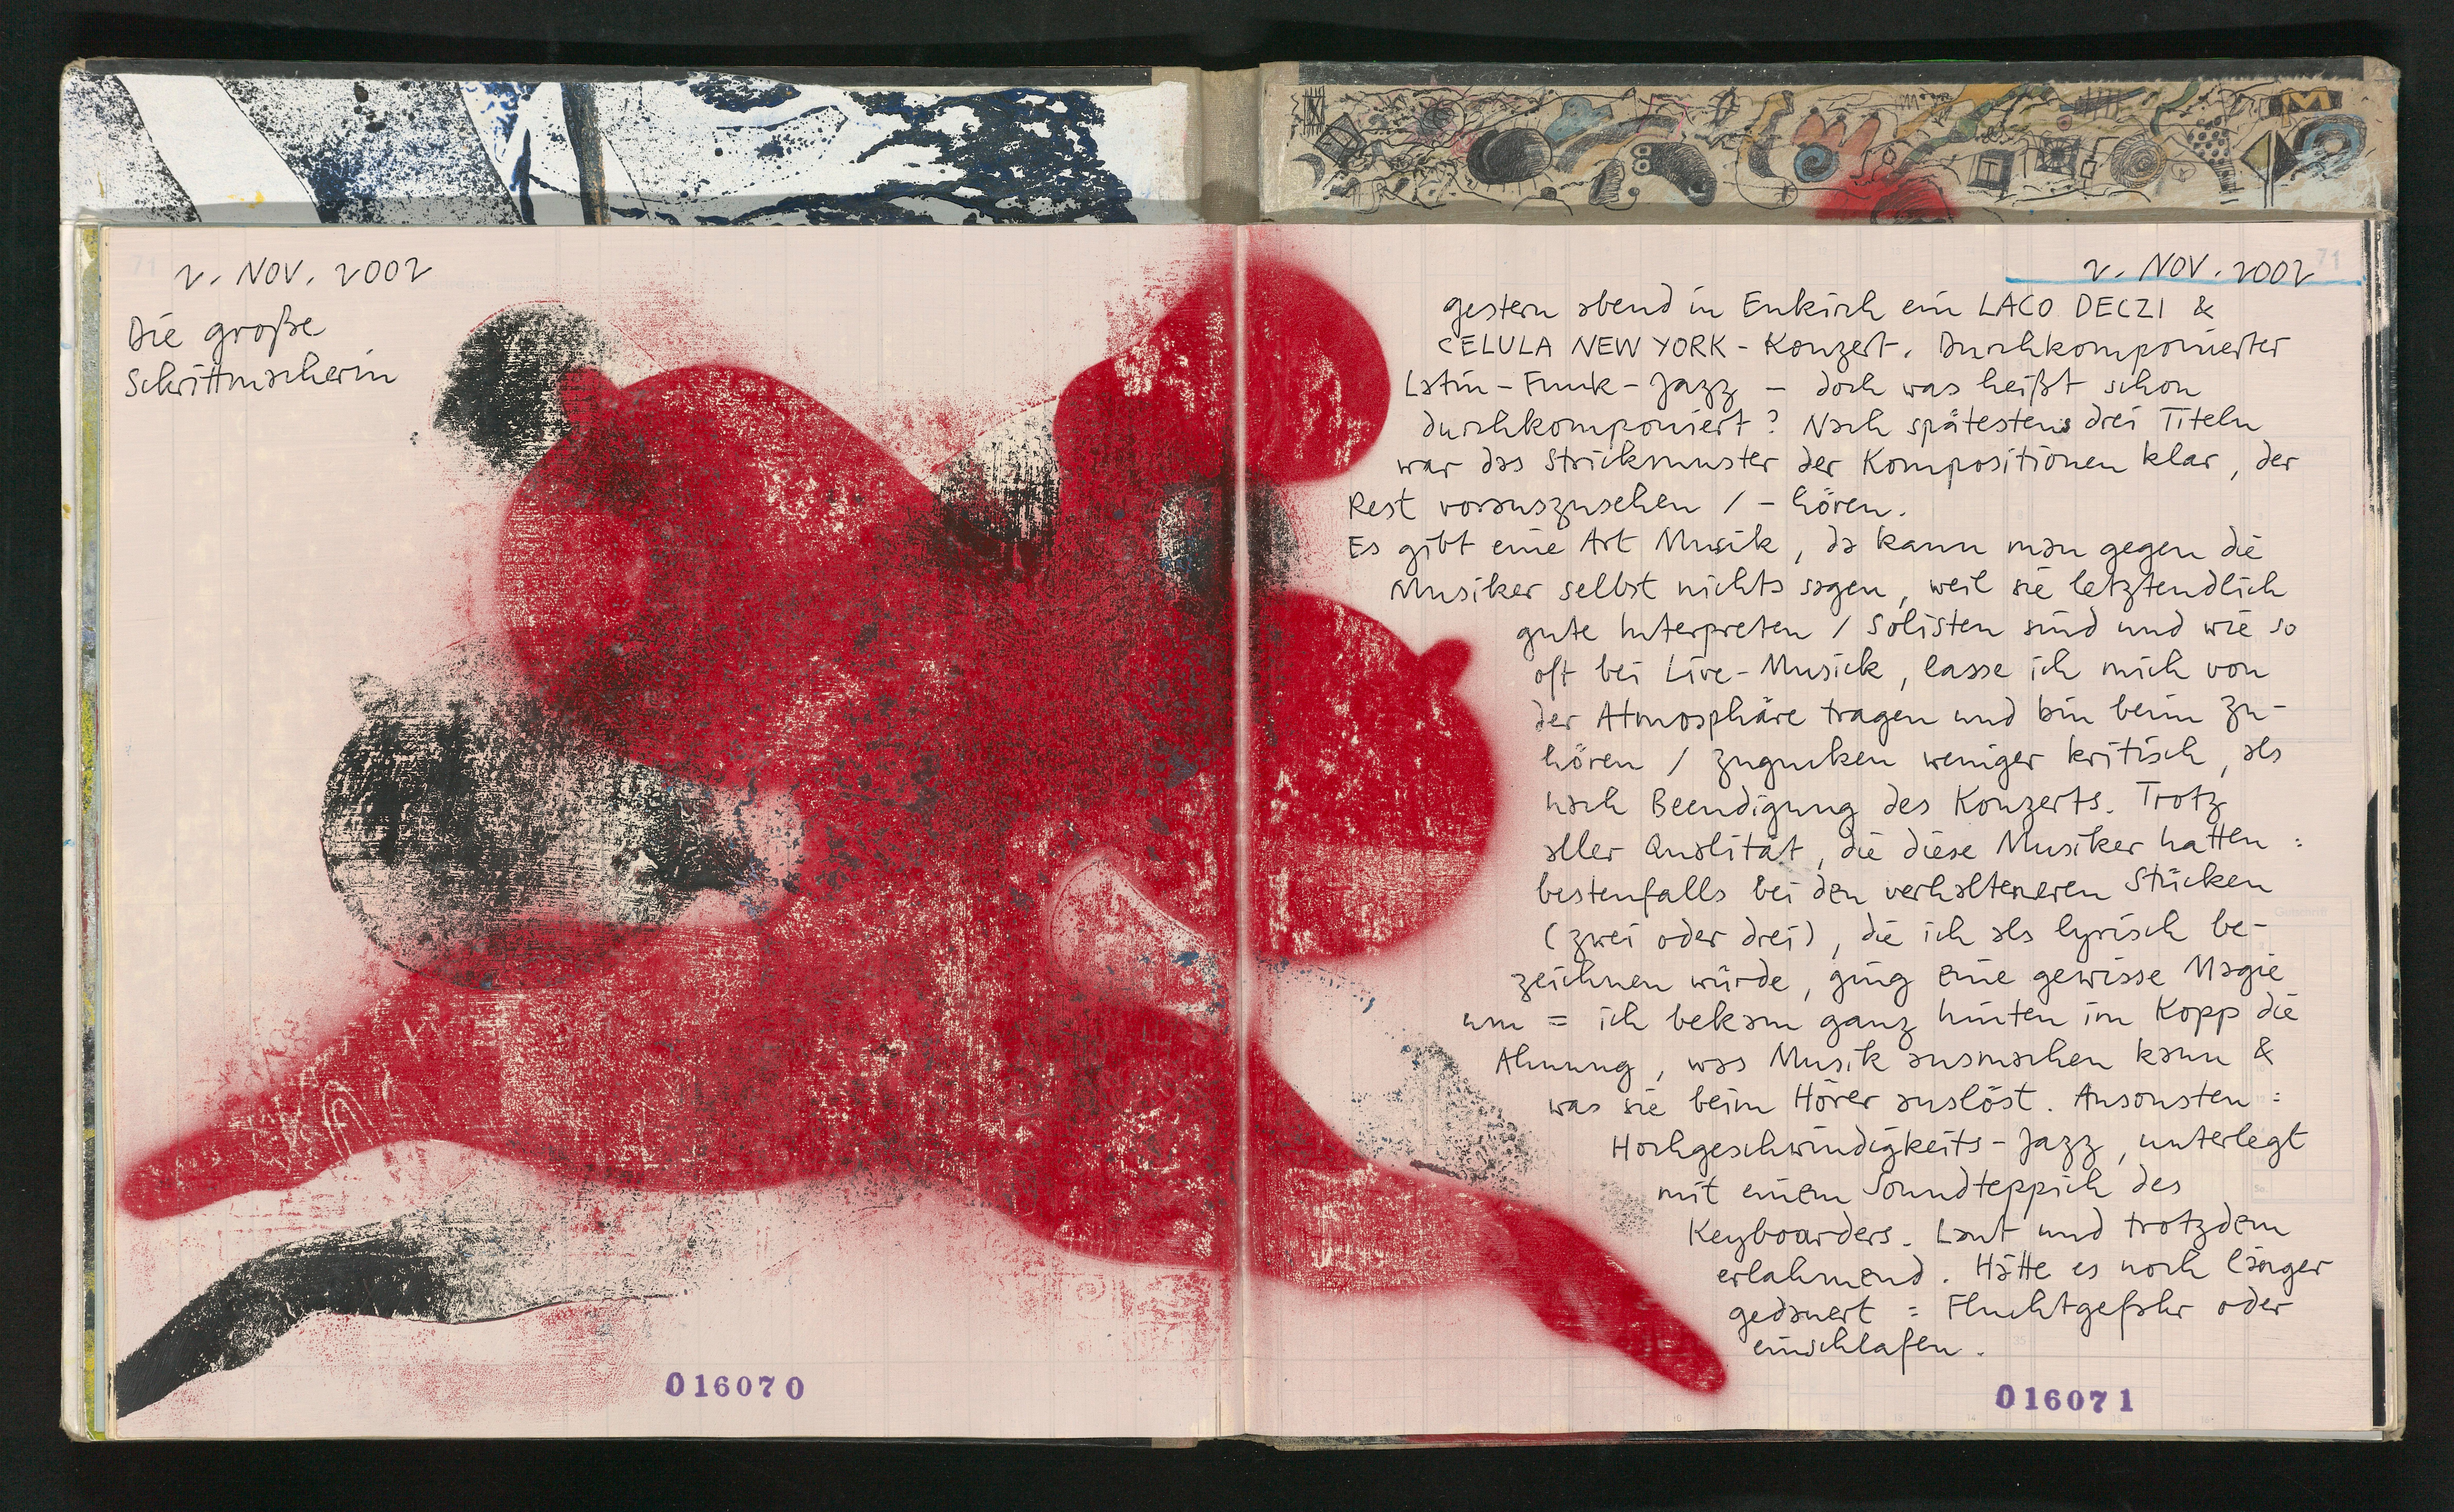 2. NOV. 2002
Die große
Schrittmacherin
016070
71
2. NOV. 2002
gestern abend in Enkirch ein LACO DECZI &
CELULA NEW YORK - Konzert. Durchkomponierter
Latin - Funk - Jazz – doch was heißt schon
durchkomponiert? Nach spätestens drei Titeln
war das Strickmuster der Kompositionen klar, der
Rest vorauszusehen / - hören.
Es gibt eine Art Musik, da kann man gegen die
Musiker selbst nichts sagen, weil sie letztendlich
gute Interpreten / Solisten sind und wie so
oft bei Live-Musick, lasse ich mich von
der Atmosphäre tragen und bin beim Zu-
hören / zugucken weniger kritisch, als
nach Beendigung des Konzerts. Trotz
aller Qualität, die diese Musiker hatten :
bestenfalls bei den verhalteneren Stücken
(zwei oder drei), die ich als lyrisch be-
zeichnen würde, ging eine gewisse Magie
um = ich bekam ganz hinten im Kopp die
Ahnung, was Musik ausmachen kann &
was sie beim Hörer auslöst. Ansonsten :
Hochgeschwindigkeits-Jazz, unterlegt
mit einem Soundteppich des
Keyboarders. Laut und trotzdem
erlahmend. Hätte es noch länger
gedauert : Fluchtgefahr oder
einschlafen.
016071